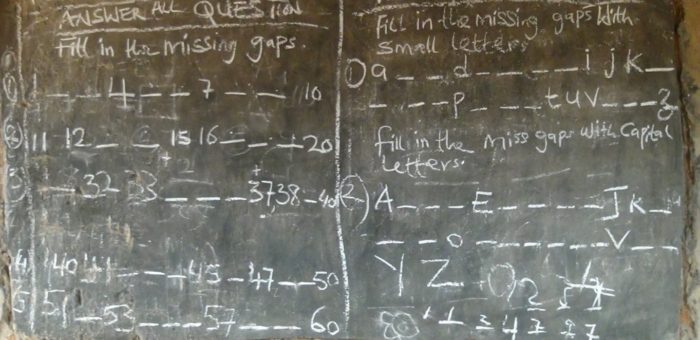 ANSWER ALL QUESTION
Fill in the missing gaps.
1) 1 _ _ 4 _ _ 7 _ _ 10
2) 11 12 _ _ 15 16 _ _ _ 20
3) _ 32 _ 33 _ _ _ 37,38 _ 40
4) 40 41 _ _ _ 45 _ 47 _ _ 50
5) 51 _ 53 _ _ _ 57 _ _ _ 60
Fill in the missing gaps with
small letters
1) a _ _ d _ _ _ _ i j k _
_ _ _ p _ _ _ t u v _ _ _ z
fill in the miss gaps with capital
letters.
2) A _ _ _ E _ _ _ _ J k _
_ _ o _ _ _ _ _ _ V _ _
Y Z